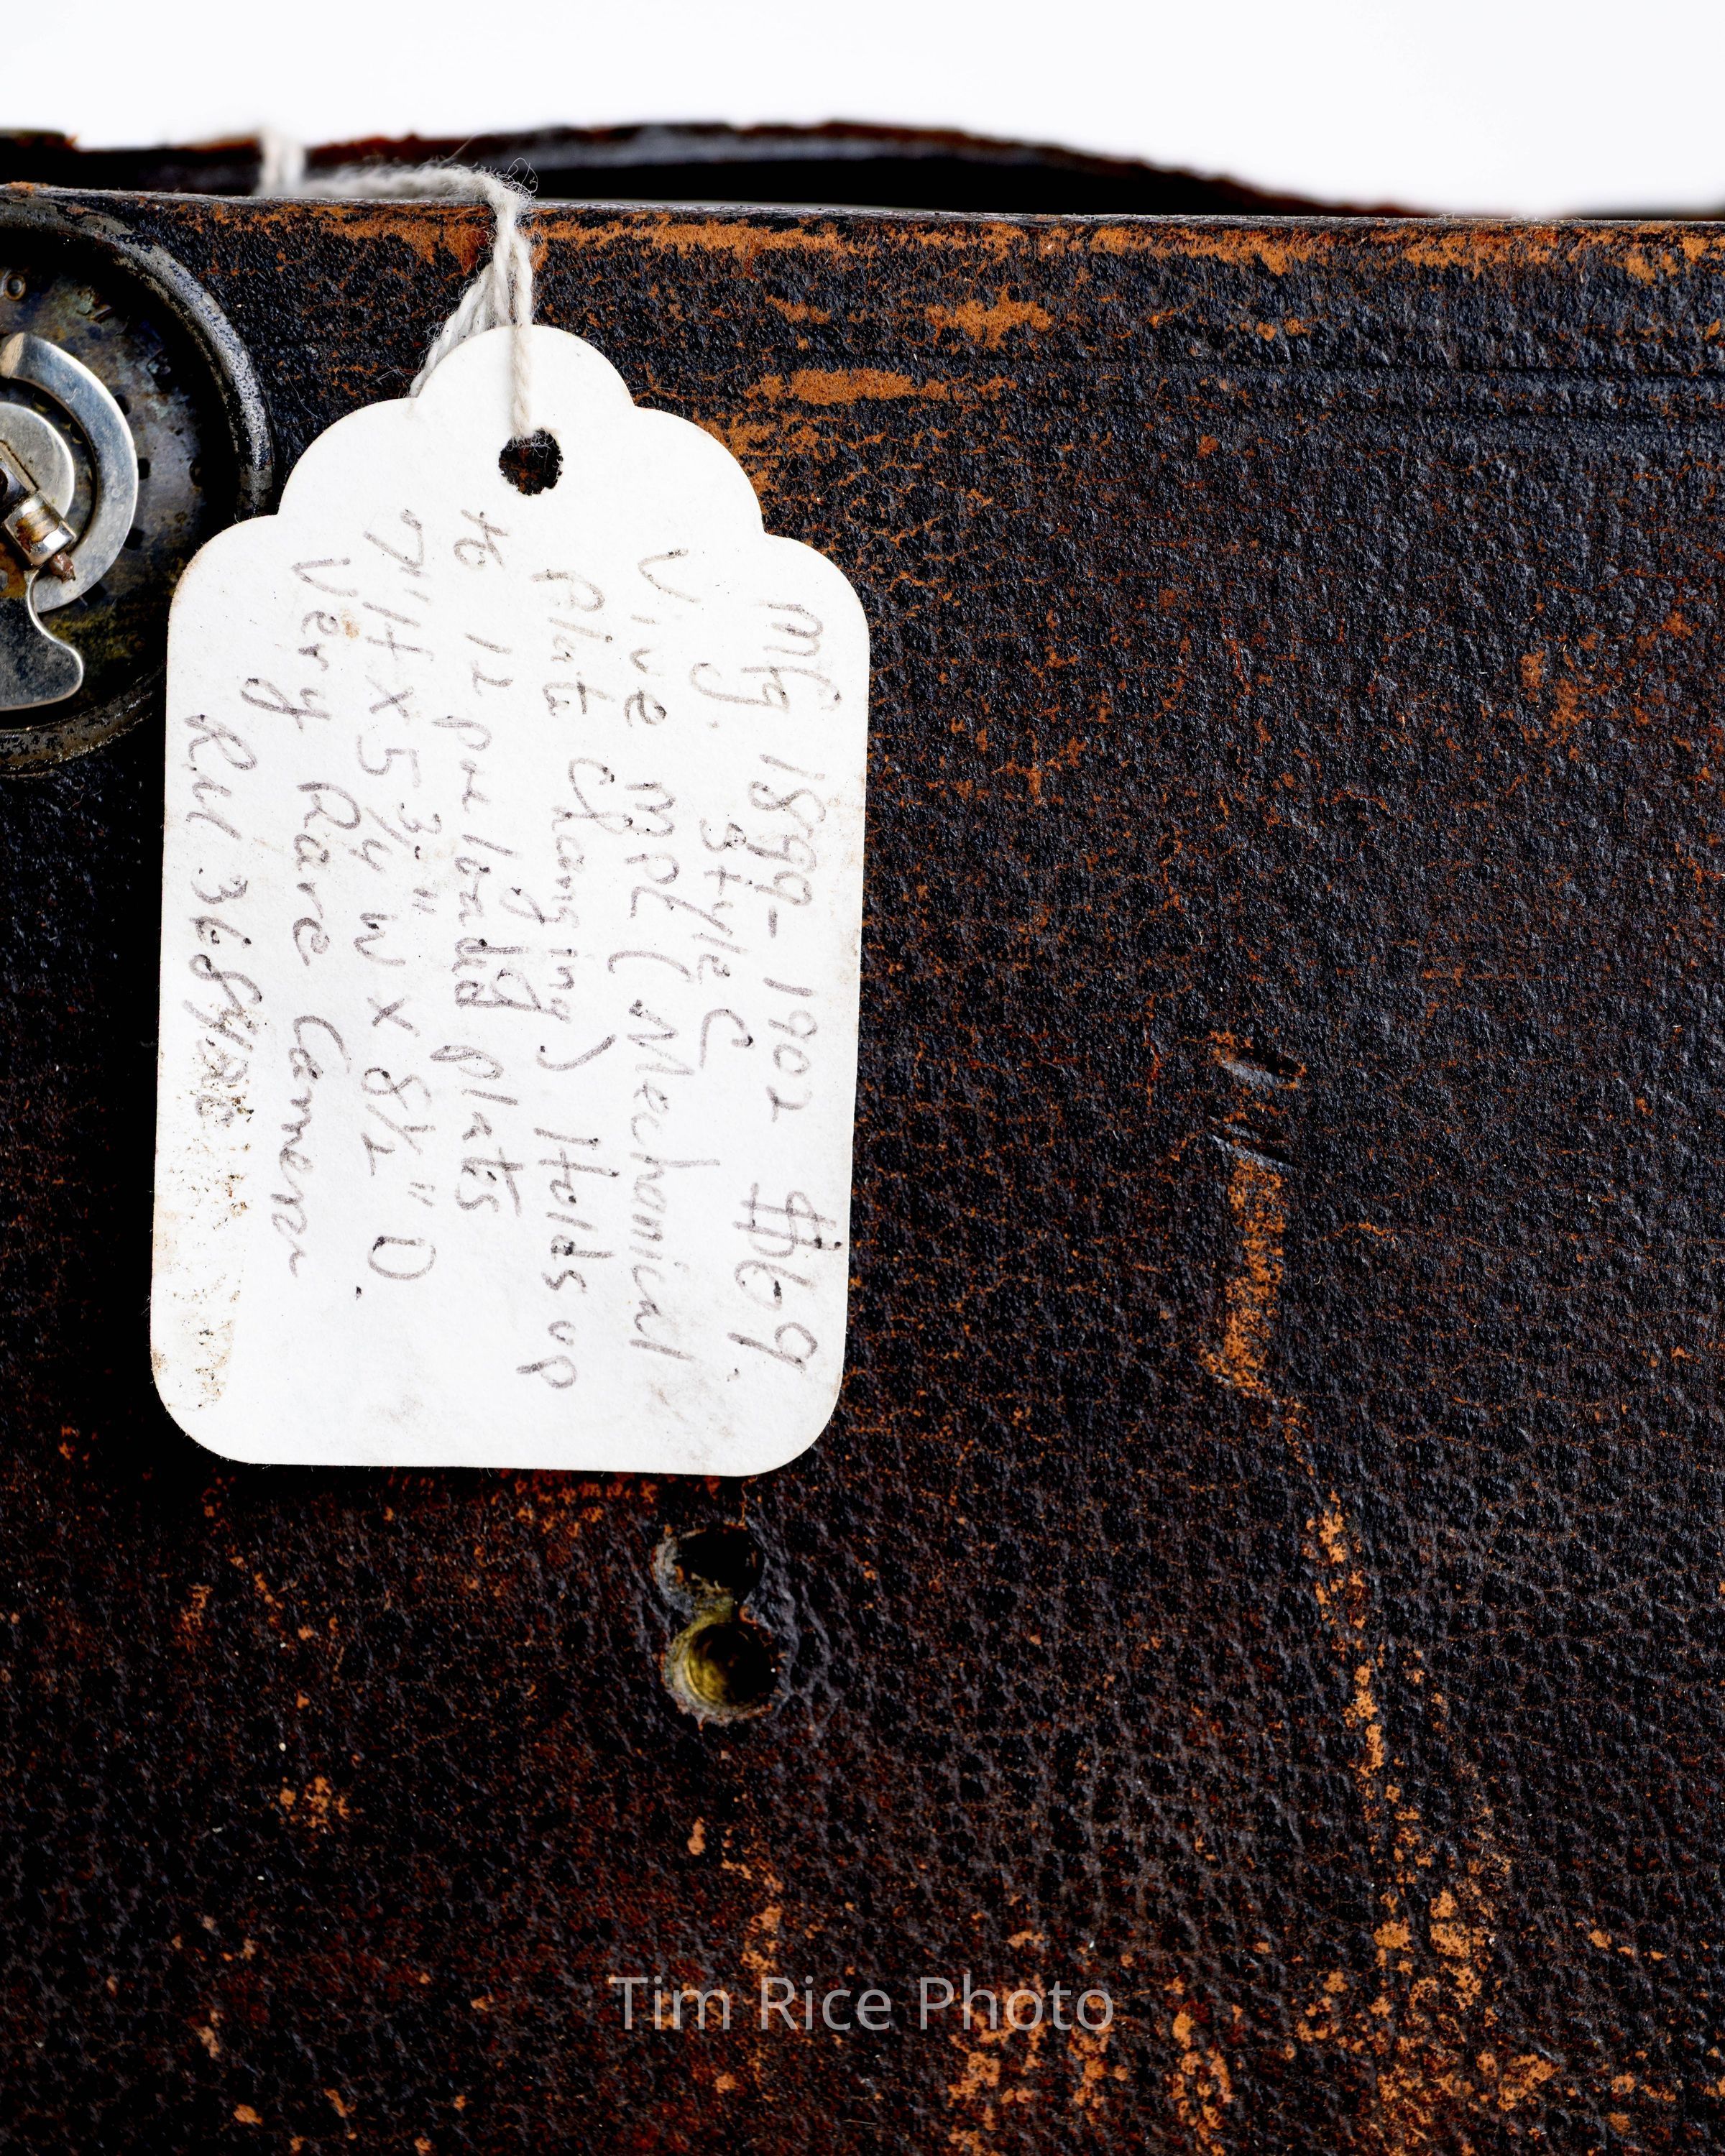 Mfg. 1899-1902 $69
Style C
Vive MPL (Mechanical
Plate Changing) Holds up
to 12 pre loaded plates
7"H x 5 3/4" W x 8 1/2" D.
Very Rare Camera
Tim Rice Photo